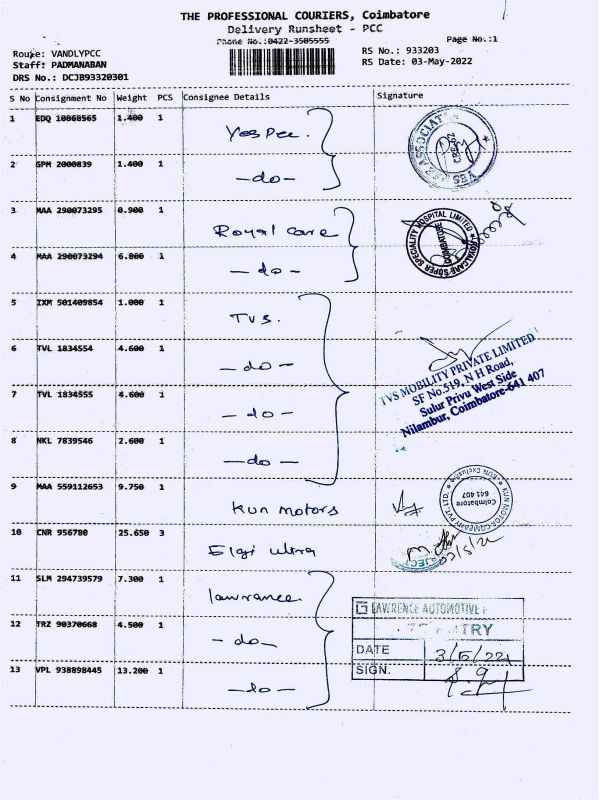 THE PROFESSIONAL COURIERS, Coimbatore
Delivery Runsheet - PCC
Phone No.:0422-3505555
Page No.:1
Route: VANDLYPCC
RS No.: 933203
Staff: PADMANABAN
RS Date: 03-May-2022
DRS No.: DCJB93320301
S No Consignment No Weight PCS Consignee Details Signature
1 EDQ 10868565 1.400 1 Yes Pee.
2 GPM 2000839 1.400 1 -do-
YES ASSOCIAT
3 MAA 290073295 0.900 1 Royal care
4 MAA 290073294 6.800 1 -do-
ROYALCARE SUPER SPECIALITY HOSPITAL LIMITED
COIMBATORE
5 IXM 501409854 1.000 1 TVS.
6 TVL 1834554 4.600 1 -do-
7 TVL 1834555 4.600 1 -do-
8 NKL 7839546 2.600 1 -do-
TVS MOBILITY PRIVATE LIMITED
SF No.519, N H Road,
Sulur Privu West Side
Nilambur, Coimbatore-641 407
9 MAA 559112653 9.750 1 Kun motors
KUN MOTOR COMPANY PVT. LTD.
KUN Exclusive
Coimbatore
641 407
10 CNR 956780 25.650 3 Elgi ultra
11 SLM 294739579 7.300 1 lawrance.
12 TRZ 90370668 4.500 1 -do-
13 VPL 938898445 13.200 1 -do-
LAWRENCE AUTOMOTIVE
DATE 3/5/22
SIGN.